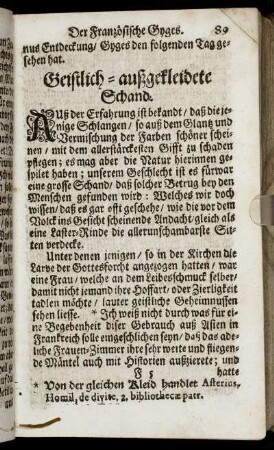 Der Französische Gyges. 89
nus Entdeckung/ Gyges den folgenden Tag ge-
sehen hat.
Geistlich-außgekleidete
Schand.
AUß der Erfahrung ist bekandt/ daß diejenige
Schlangen/ so auß dem Glantz und
Vermischung der Farben schöner schei-
nen/ mit dem allerstärckesten Gifft zu schaden
pflegen; es mag aber die Natur hierinnen ge-
spilet haben; unserem Geschlecht ist es fürwar
eine grosse Schand/ daß solcher Betrug bey den
Menschen gefunden wird: Welches wir doch
wissen/ daß es gar offt geschehe/ wie die vor dem
Volck ins Gesicht scheinende Andacht/ gleich als
eine Laster-Rinde die allerunschambarste Sit-
ten verdecke.
Unter denen jenigen/ so in der Kirchen die
Larve der Gottesforcht angezogen hatten/ war
eine Frau/ welche an dem Leibesschmuck selber/
damit nicht jemand ihre Hoffart/ oder Zierligkeit
tadlen möchte/ lauter geistliche Geheimnussen
sehen liesse. * Ich weiß nicht durch was für ei-
ne Begebenheit diser Gebrauch auß Asien in
Franckreich solle eingeschlichen seyn/ daß das ade-
liche Frauen-Zimmer ihre sehr weite und fliegen-
de Mäntel auch mit Historien außzierete; und
F 5 hatte
* Von der gleichen Kleid handlet Asterius,
Homil, de divite, 2, bibliothecæ patr.